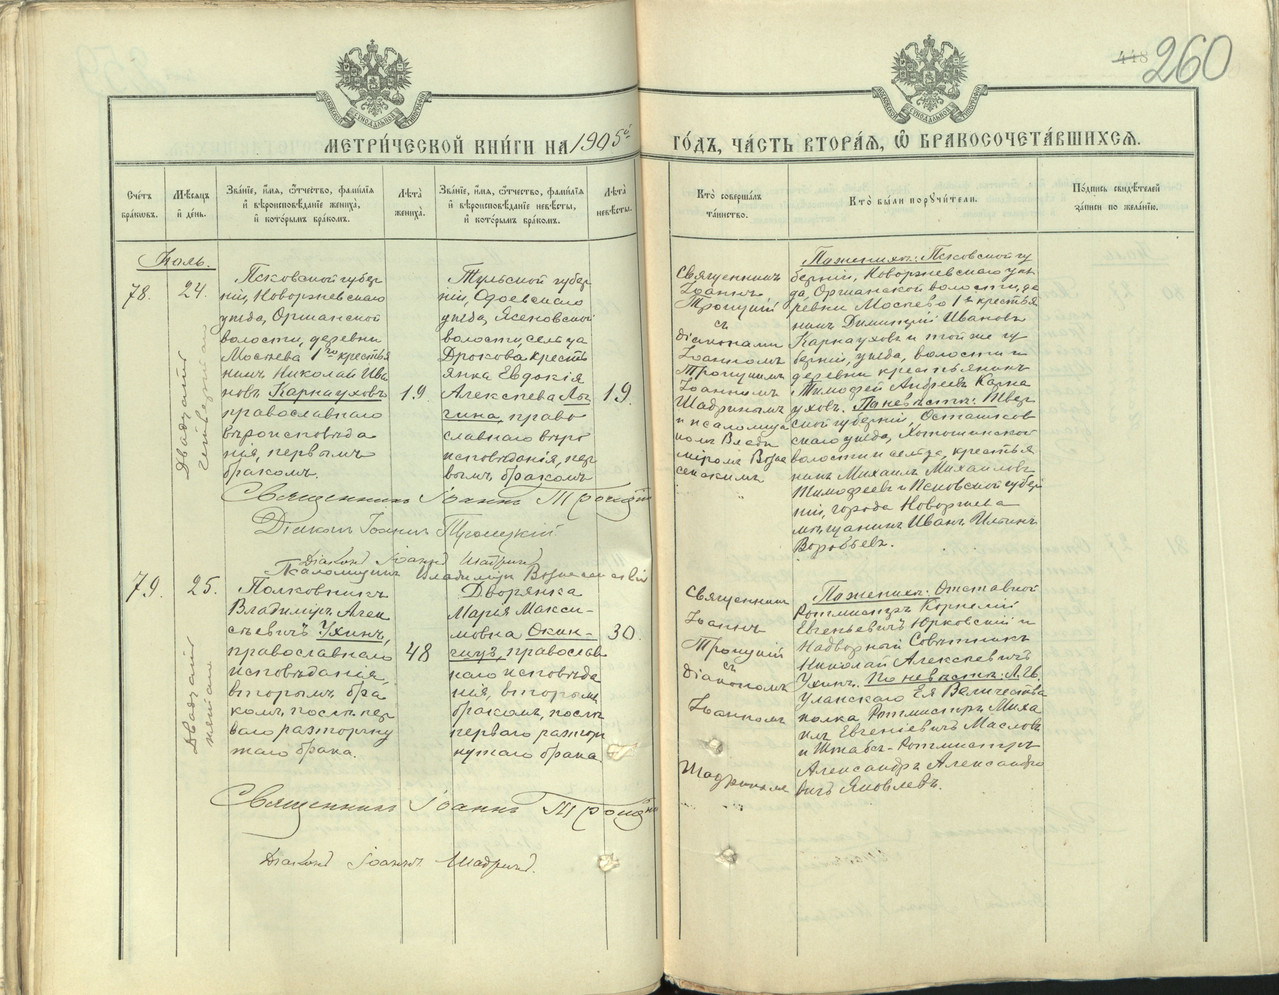 448 260
МЕТРИ́ЧЕСКОЙ КНИ́ГИ НА 1905й ГО́ДЪ, ЧА́СТЬ ВТОРА́Ѧ, Ѽ БРАКОСОЧЕТА́ВШИХСѦ.
Сче́тъ
бра́ковъ.
Мѣ́сяцъ
и́ де́нь.
Зва́нїе, и́мя, ѻ҆́тчество, фами́лїя
и҆ вѣроисповѣ́данїе жениха̀,
и҆ кото́рымъ бра́комъ.
Лѣ̑та
жениха̀.
Зва́нїе, и́мя, ѻ҆́тчество, фами́лїя
и҆ вѣроисповѣ́данїе невѣ́сты,
и҆ кото́рымъ бра́комъ.
Лѣ̑та
невѣ́сты.
Кто̀ соверша́лъ
та́инство.
Кто̀ бы́ли порꙋчи́тели.
По́дпись свидѣ́телей
за́писи по жела́нїю.
Іюль.
78.
24.
Двадцать
четвертаго
Псковской губер
ніи, Новоржевскаго
уѣзда, Оршанской
волости, деревни
Мосѣева 1го крестья
нинъ Николай Ива
новъ Карнауховъ
православнаго
вѣроисповѣда
нія, первымъ
бракомъ.
19.
Тульской губер
ніи, Одоевскаго
уѣзда, Ясеновской
волости, сельца
Дрокова крестья
янка Евдокія
Алексѣева
православнаго вѣро
исповѣданія, пер
вымъ бракомъ
19.
Священникъ
Іоаннъ
Троицкій
съ
діаконами
Іоанномъ
Троицкимъ
Іоанномъ
Шадринымъ
и псаломщи
комъ Влади
міромъ Возне
сенскимъ
По женихѣ: Псковской гу
берніи, Новоржевскаго уѣз
да, Оршанской волости, де
ревни Мосѣево 1й крестья
нинъ Димитрій Ивановъ
Карнауховъ и той же гу
берніи, уѣзда, волости и
деревни крестьянинъ
Тимофей Андреевъ Карна
уховъ. По невѣстѣ: Твер
ской губерніи, Осташков
скаго уѣзда, Хотошинской
волости и сельца, крестья
нинъ Михаилъ Михайловъ
Тимофеевъ и Псковской губер
ніи, города Новоржева
мѣщанинъ Иванъ
Воробьевъ.
Священникъ Іоаннъ Троицкій
Діаконъ Іоаннъ Троицкій
Діаконъ Іоаннъ Шадринъ
Псаломщикъ Владиміръ Вознесенскій
79.
25.
Двадцать
пятаго
Полковникъ
Владиміръ Алек
сѣевичъ Ухинъ,
православнаго
исповѣданія,
вторымъ бра
комъ, послѣ пер
ваго расторгну
таго брака.
48
Дворянка
Марія Макси-
мовна
православ
наго исповѣда
нія, вторымъ
бракомъ, послѣ
перваго растор
гнутаго брака
30.
Священникъ
Іоаннъ
Троицкій
съ
діакономъ
Іоанномъ
Шадринымъ
По женихѣ: Отставной
Ротмистръ Корнелій
Евгеньевичъ Юрковскій и
Надворный Совѣтникъ
Николай Алексѣевичъ
Ухинъ. По невѣстѣ: Л.Гв.
Уланскаго Ея Величества
полка Ротмистръ Миха
илъ Евгеніевичъ Масловъ
и Штабсъ-Ротмистръ
Александръ Александро
вичъ Яковлевъ.
Священникъ Іоаннъ Троицкій
Діаконъ Іоаннъ Шадринъ.